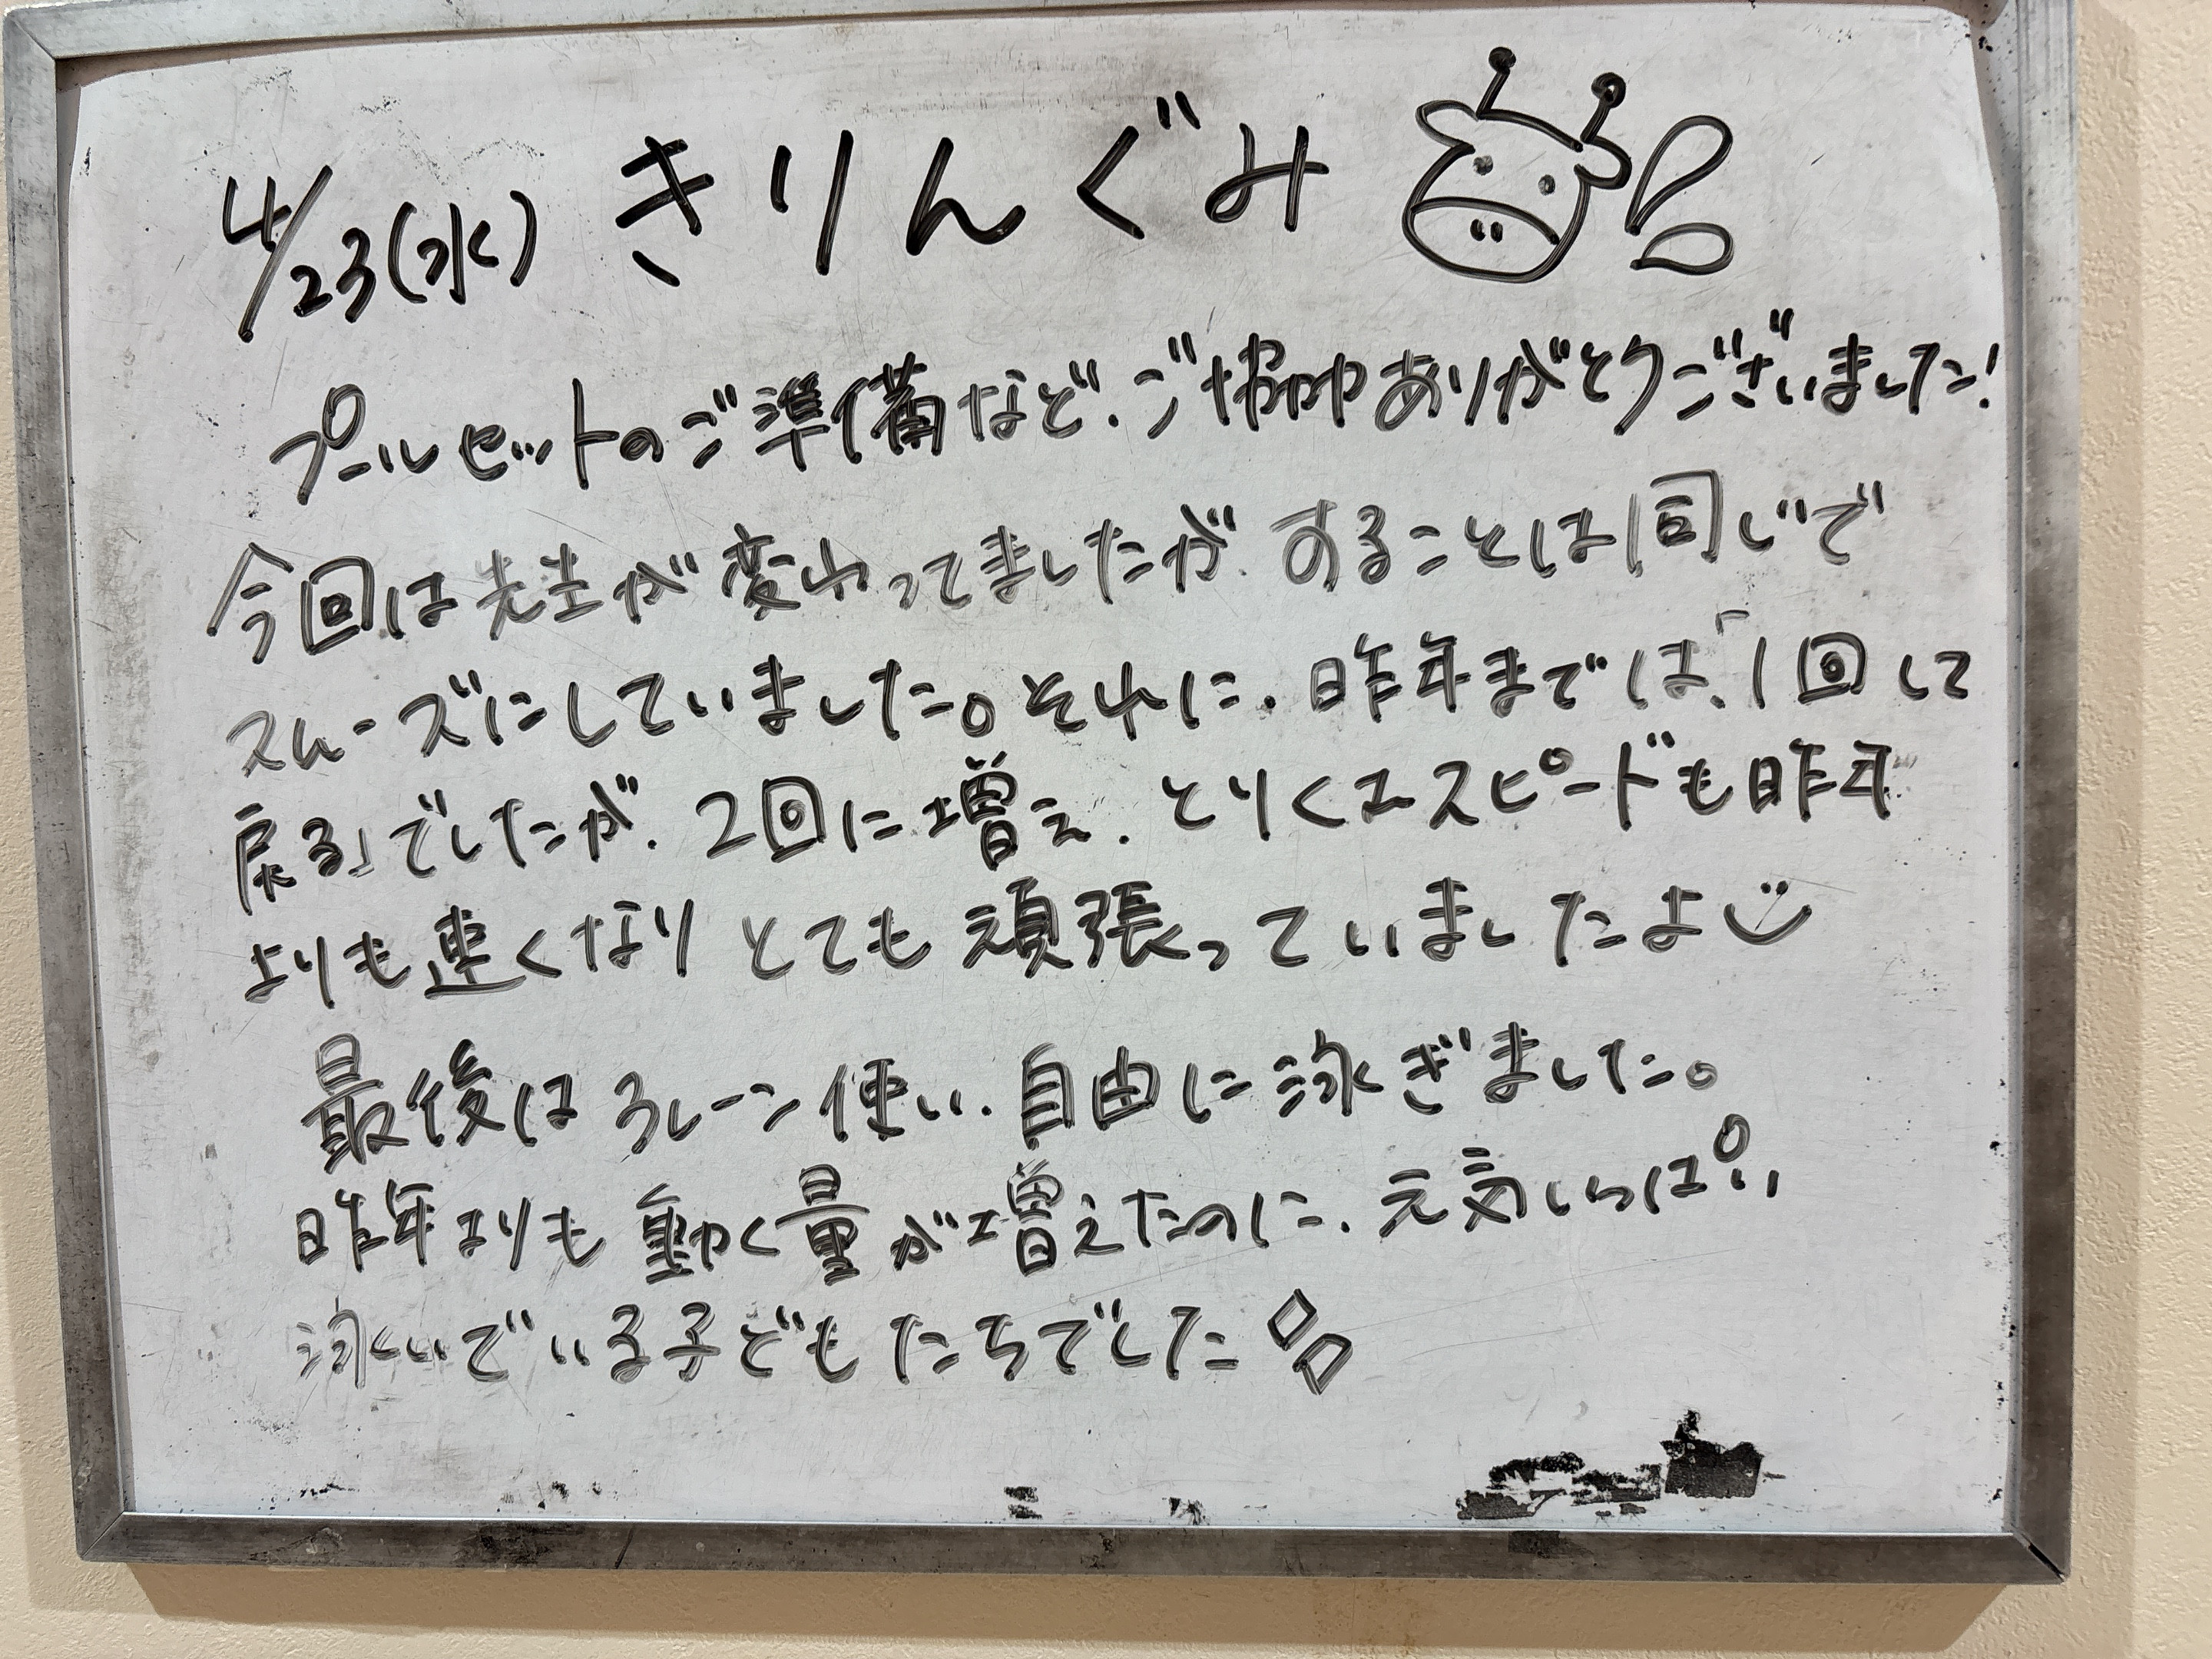 4/23(水) きりんぐみ
プールセットのご準備など、ご協力ありがとうございました!
今回は先生が変わってましたが、することは同じで
スムーズにしていました。それに、昨年までは、「1回して
戻る」でしたが、2回に増え、とりくむスピードも昨年
よりも速くなりとても頑張っていましたよ
最後は3レーン使い、自由に泳ぎました。
昨年よりも動く量が増えたのに、元気いっぱい
泳いでいる子どもたちでした